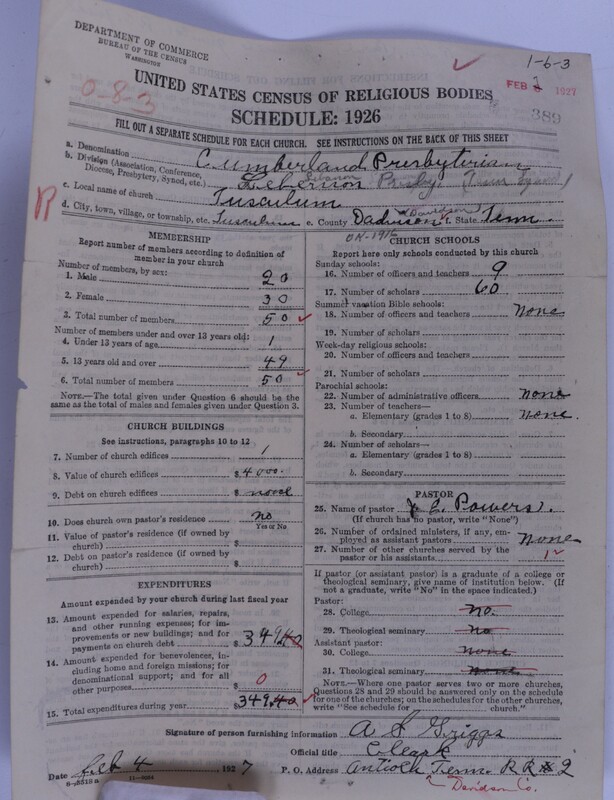 DEPARTMENT OF COMMERCE
BUREAU OF THE CENSUS
WASHINGTON
1-6-3
FEB 1927
389
0-8-3
UNITED STATES CENSUS OF RELIGIOUS BODIES
SCHEDULE: 1926
FILL OUT A SEPARATE SCHEDULE FOR EACH CHURCH. SEE INSTRUCTIONS ON THE BACK OF THIS SHEET
a. Denomination Cumberland Presbyterian
b. Division (Association, Conference, Diocese, Presbytery, Synod, etc.) Lebernon Lebanon Presby. (Tenn Synod)
c. Local name of church Tusculum
d. City, town, village, or township, etc. Tusculum e. County Dadison (Davidson) f. State Tenn.
OK-1916
MEMBERSHIP
Report number of members according to definition of member in your church
Number of members, by sex:
1. Male 20
2. Female 30
3. Total number of members 50
Number of members under and over 13 years old:
4. Under 13 years of age 1
5. 13 years old and over 49
6. Total number of members 50
NOTE.—The total given under Question 6 should be same as the total of males and females given under Question 3.
CHURCH BUILDINGS
See instructions, paragraphs 10 to 12
7. Number of church edifices 1
8. Value of church edifices $4000.
9. Debt on church edifices $
10. Does church own pastor's residence? no
Yes or No
11. Value of pastor's residence (if owned by church) $
12. Debt on pastor's residence (if owned by church) $
EXPENDITURES
Amount expended by your church during last fiscal year
13. Amount expended for salaries, repairs, and other running expenses; for improvements or new buildings; and for payments on church debt $349.40
14. Amount expended for benevolences, including home and foreign missions; for denominational support; and for all other purposes $0
15. Total expenditures during year $349.40
CHURCH SCHOOLS
Report here only schools conducted by this church
Sunday schools:
16. Number of officers and teachers 9
17. Number of scholars 60
Summer vacation Bible schools:
18. Number of officers and teachers None
19. Number of scholars
Week-day religious schools:
20. Number of officers and teachers
21. Number of scholars
Parochial schools:
22. Number of administrative officers none
23. Number of teachers—
a. Elementary (grades 1 to 8) none.
b. Secondary
24. Number of scholars—
a. Elementary (grades 1 to 8)
b. Secondary
PASTOR
25. Name of pastor J. E. Powers.
(If church has no pastor, write "None")
26. Number of ordained ministers, if any, employed as assistant pastors None
27. Number of other churches served by the pastor or his assistants
If pastor (or assistant pastor) is a graduate of a college or theological seminary, give name of institution below. (If not a graduate, write "No" in the space indicated.)
Pastor:
28. College No.
29. Theological seminary No
Assistant pastor:
30. College none
31. Theological seminary none
NOTE.—Where one pastor serves two or more churches, Questions 28 and 29 should be answered only on the schedule for one of the churches; on the schedules for the other churches, write "See schedule for church."
Signature of person furnishing information A S Griggs
Official title Cleark
Date Feb 4 1927 P. O. Address Antioch Tenn. RR#2
Davidson Co.